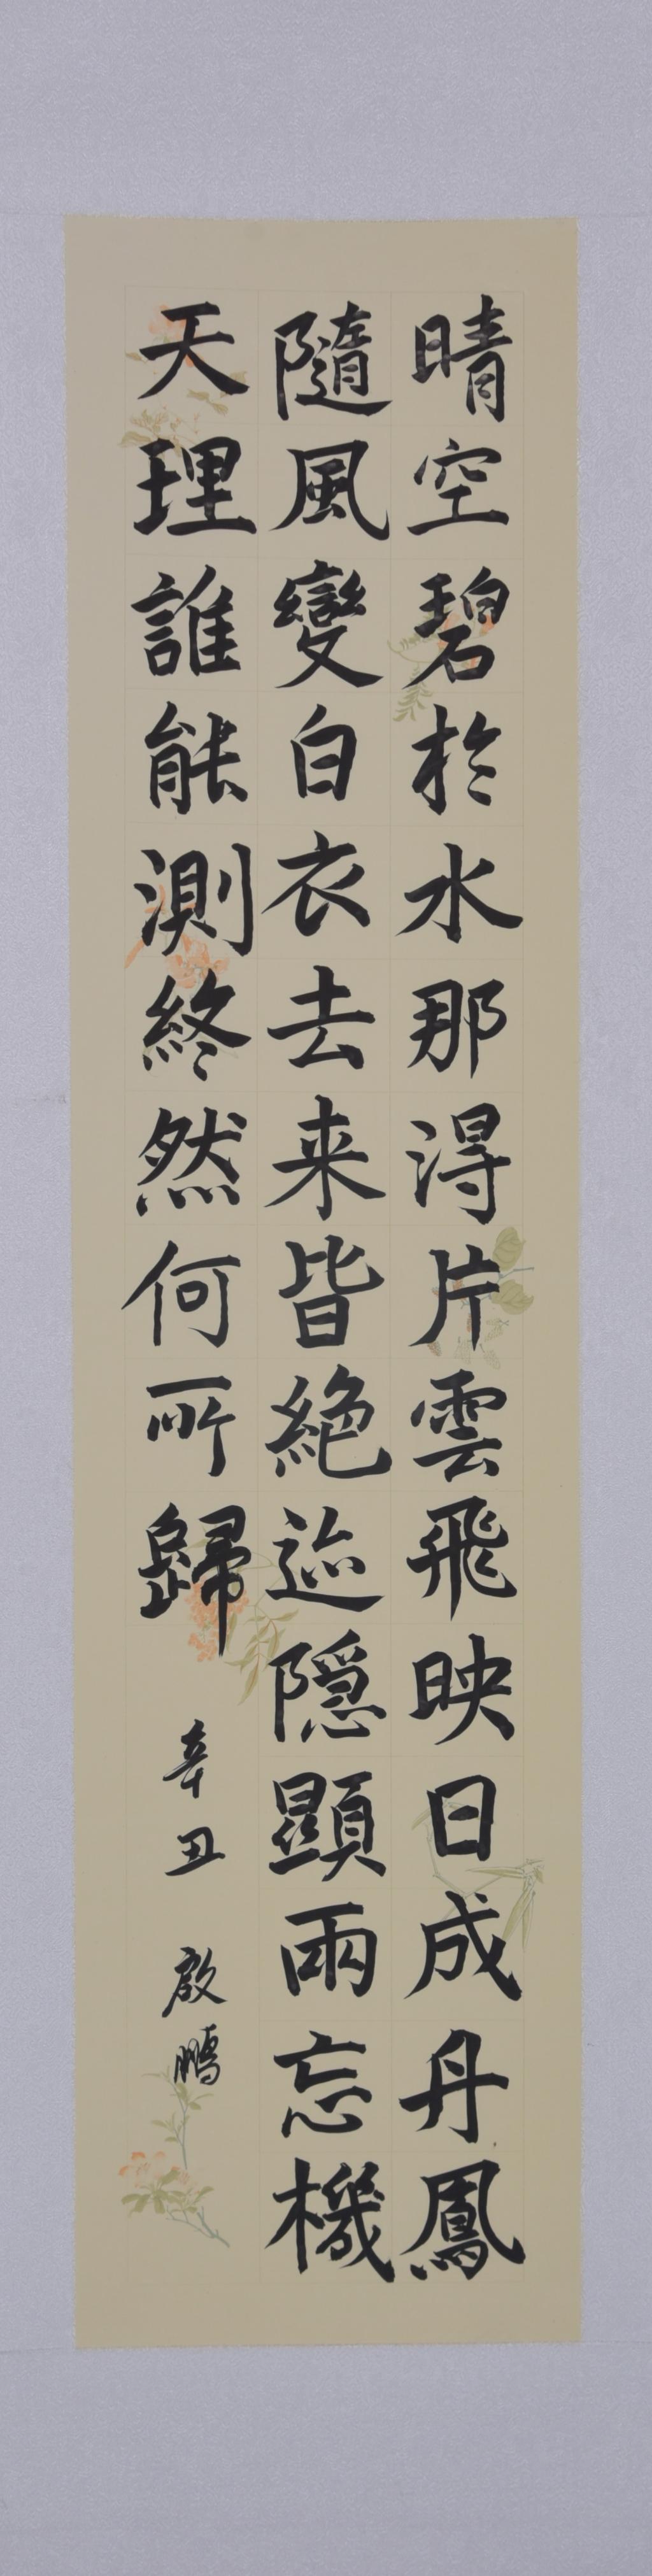 晴空碧於水那得片雲飛映日成丹鳳
隨風變白衣去来皆絶迹隱顯兩忘機
天理誰能測終然何所歸
辛丑 啟鵬